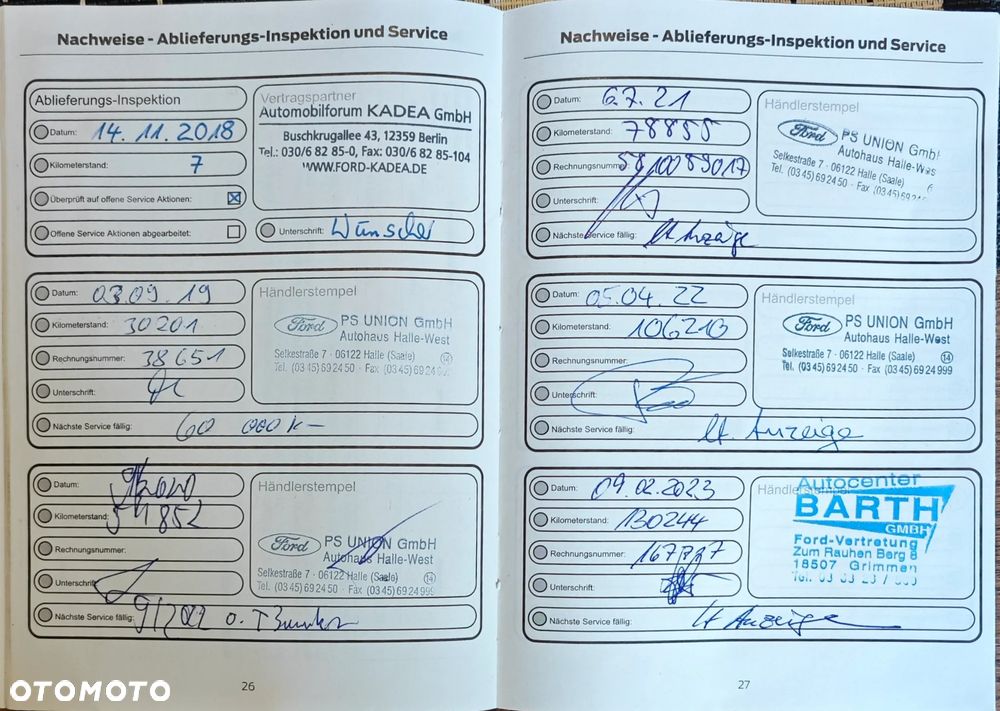 Nachweise - Ablieferungs-Inspektion und Service
Ablieferungs-Inspektion
Datum: 14.11.2018
Kilometerstand: 7
Überprüft auf offene Service Aktionen:
Offene Service Aktionen abgearbeitet:
Vertragspartner
Automobilforum KADEA GmbH
Buschkrugallee 43, 12359 Berlin
Tel.: 030/6 82 85-0, Fax: 030/6 82 85-104
WWW.FORD-KADEA.DE
Unterschrift:
Datum: 03.09.19
Kilometerstand: 30201
Rechnungsnummer: 38651
Unterschrift:
Nächste Service fällig: 60 000 K
Händlerstempel
Ford PS UNION GmbH
Autohaus Halle-West
Selkestraße 7 · 06122 Halle (Saale) 14
Tel. (03 45) 6 92 4 50 · Fax (03 45) 6 9 24
Datum:
Kilometerstand: 54852
Rechnungsnummer:
Unterschrift:
Nächste Service fällig: 9/2022 o.
Händlerstempel
Ford PS UNION GmbH
Autohaus Halle-West
Selkestraße 7 · 06122 Halle (Saale) 14
Tel. (03 45) 6 92 4 50 · Fax (03 45) 6 9 24 999
26
Nachweise - Ablieferungs-Inspektion und Service
Datum: 6.7.21
Kilometerstand: 78855
Rechnungsnumm
Unterschrift:
Nächste Service fällig: lt Anzeige
Händlerstempel
Ford PS UNION GmbH
Autohaus Halle-Wes
Selkestraße 7 · 06122 Halle (Saale)
Tel. (03 45) 6 92 4 50 · Fax (03 45) 6 9 24
Datum: 05.04.22
Kilometerstand: 106210
Rechnungsnummer:
Unterschrift:
Nächste Service fällig: lt. Anzeige
Händlerstempel
Ford PS UNION GmbH
Autohaus Halle-West
Selkestraße 7 · 06122 Halle (Saale) 14
Tel. (03 45) 6 92 4 50 · Fax (03 45) 6 9 24 999
Datum: 09.02.2023
Kilometerstand: 130244
Rechnungsnummer:
Unterschrift:
Nächste Service fällig: lt Anzeige
Händlerstempel
Autocenter
BARTH
GMBH
Ford-Vertretung
Zum Rauhen Berg 8
18507 Grimmen
27
OTOMOTO